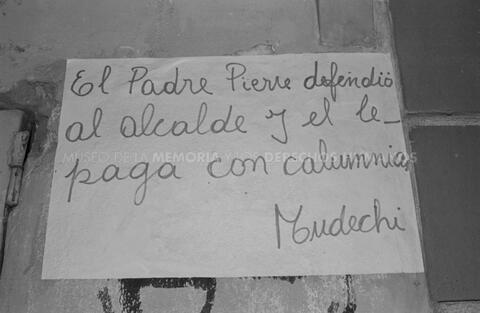 El Padre Pierre defendió
al alcalde y el le-
MUSEO DE LA MEMORIA Y LOS DERECHOS HUMANOS
paga con calumnia
Mudechi